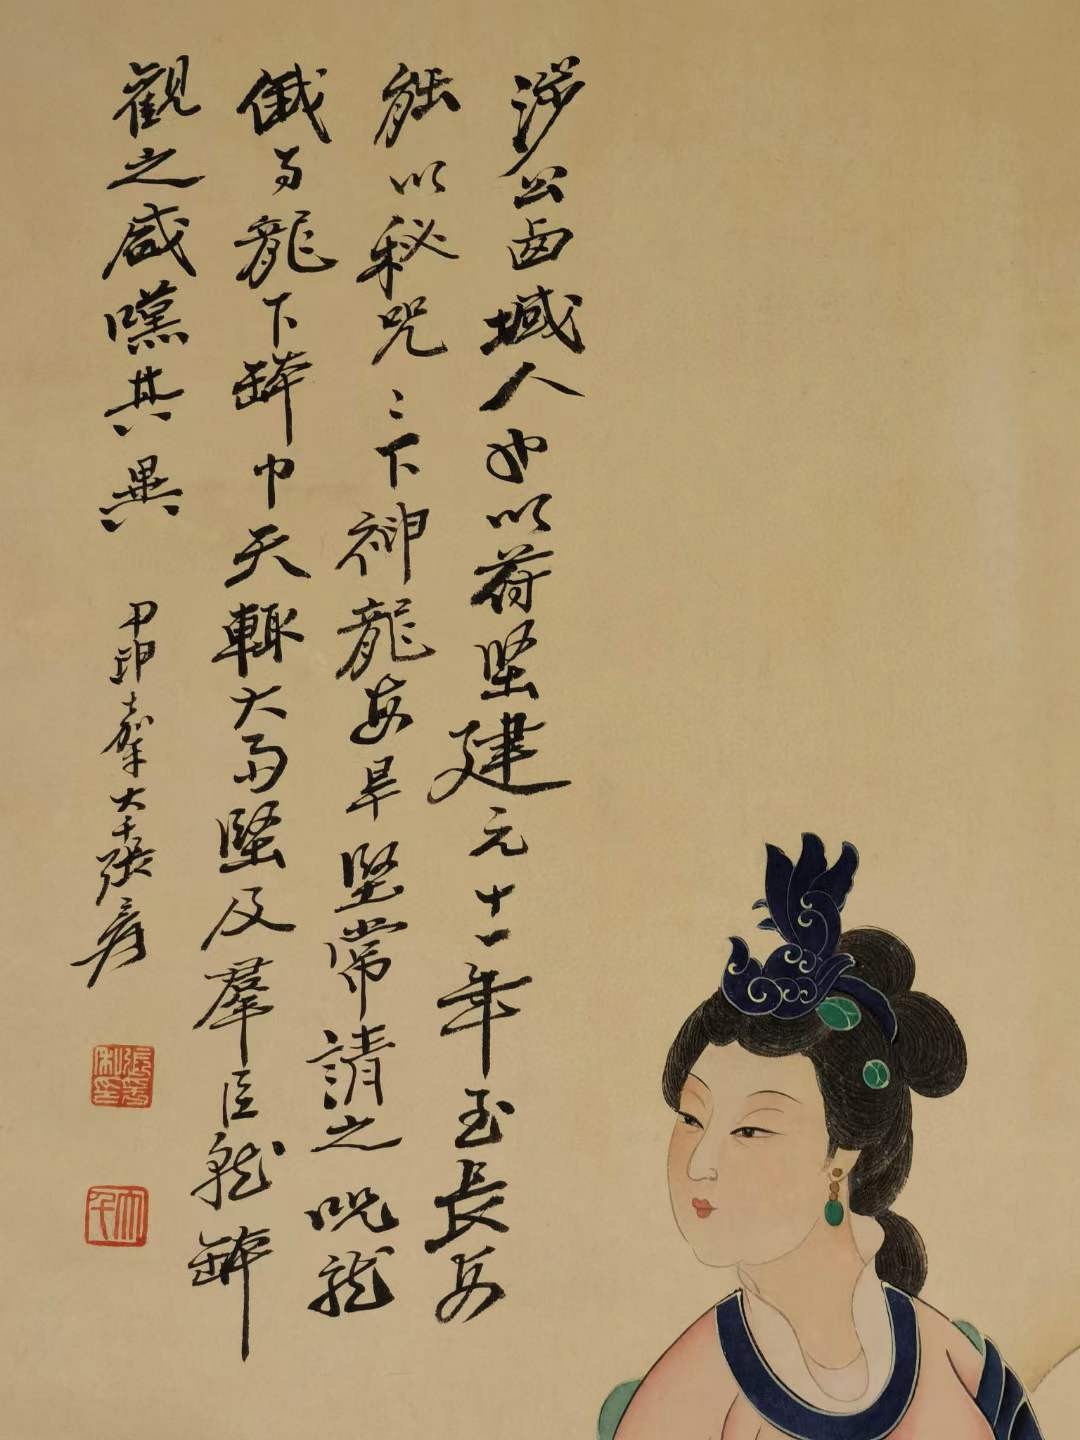 涉公西域人也以苻堅建元十一年至長安
能以秘咒々下神龍每旱堅常請之咒龍
俄而龍下鉢中天輒大雨堅及羣臣就鉢
觀之咸嘆其異
甲申嘉平大千張爰
張爰
大千